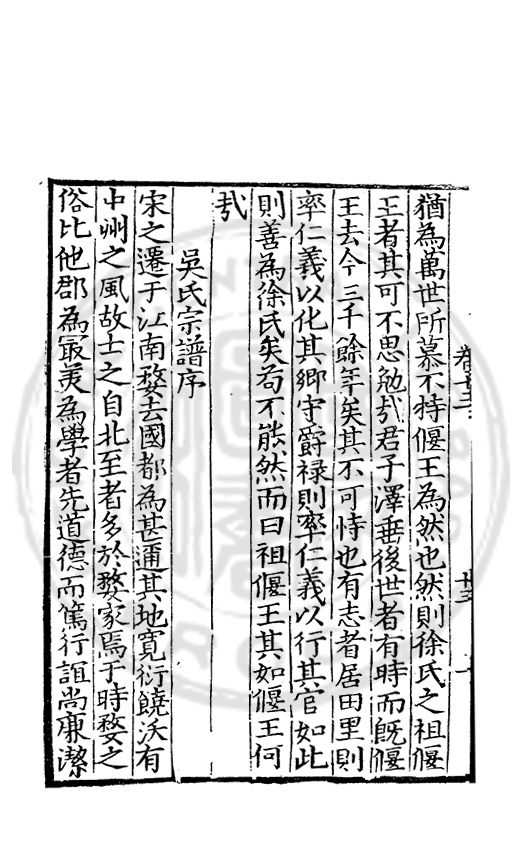 猶為萬世所慕不特偃王為然也然則徐氏之祖偃
王者其可不思勉㢤君子澤垂後世者有時而旣偃
王去今三千餘年矣其不可恃也有志者居田里則
率仁義以化其鄉守爵禄則率仁義以行其官如此
則善為徐氏矣苟不能然而曰祖偃王其如偃王何
㢤
吳氏宗譜序
宋之遷于江南婺去國都為甚邇其地寬衍饒沃有
中州之風故士之自北至者多於婺家焉于時婺之
俗比他郡為㝡羙為學者先道德而篤行誼尚亷潔